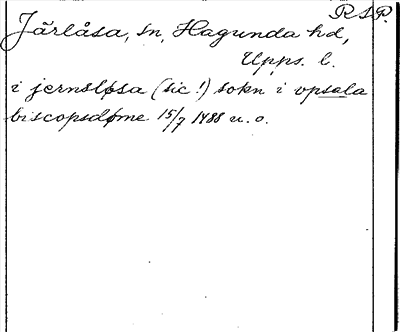 R S P.
Järlåsa, sn, Hagunda hd,
Upps. l.
i jernsløsa (sic!) sokn i vpsala
biscopsdøme 15/7 1488 u. o.